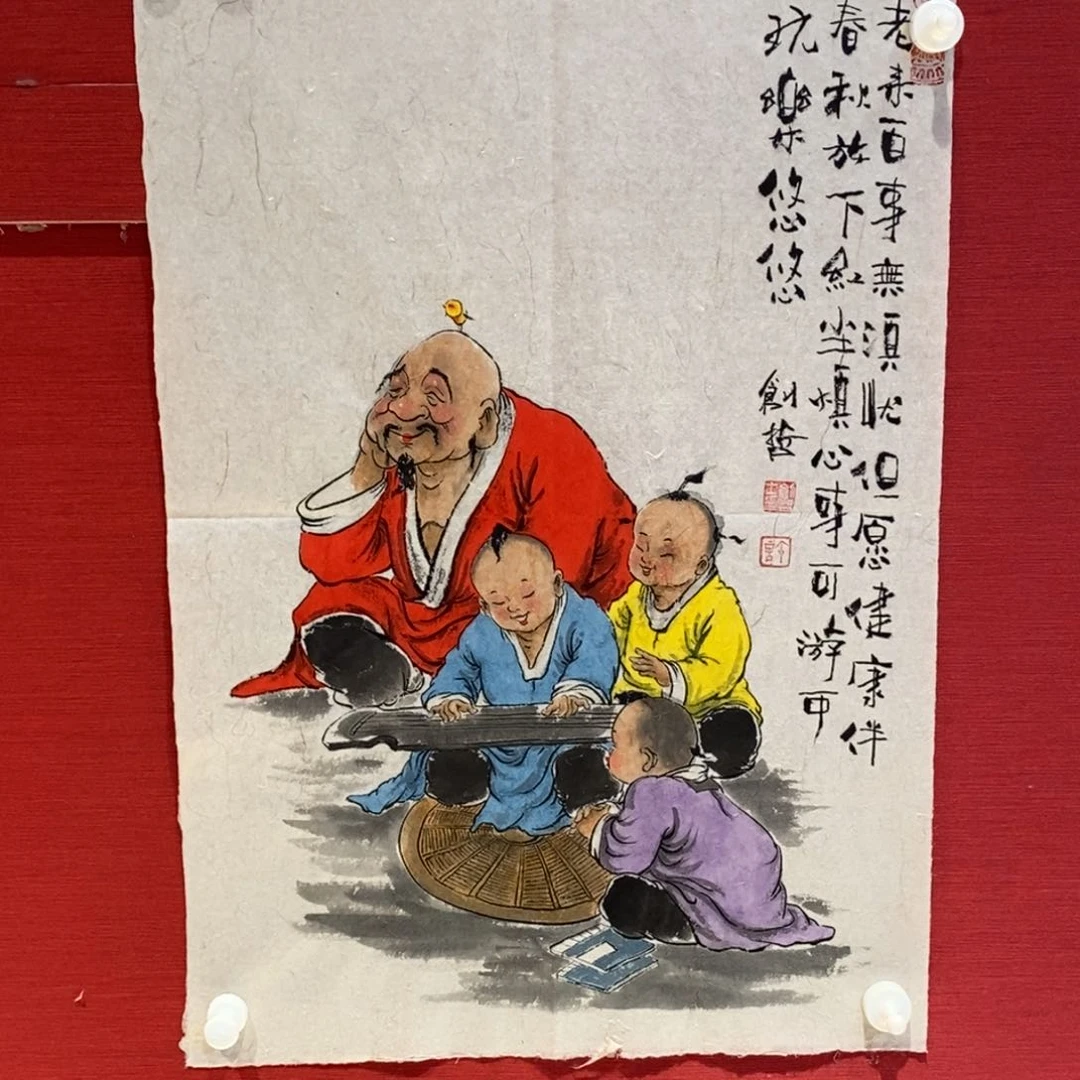 老来百事無須忧但愿健康伴
春秋放下紅尘煩心事可游可
玩樂悠悠
創哲